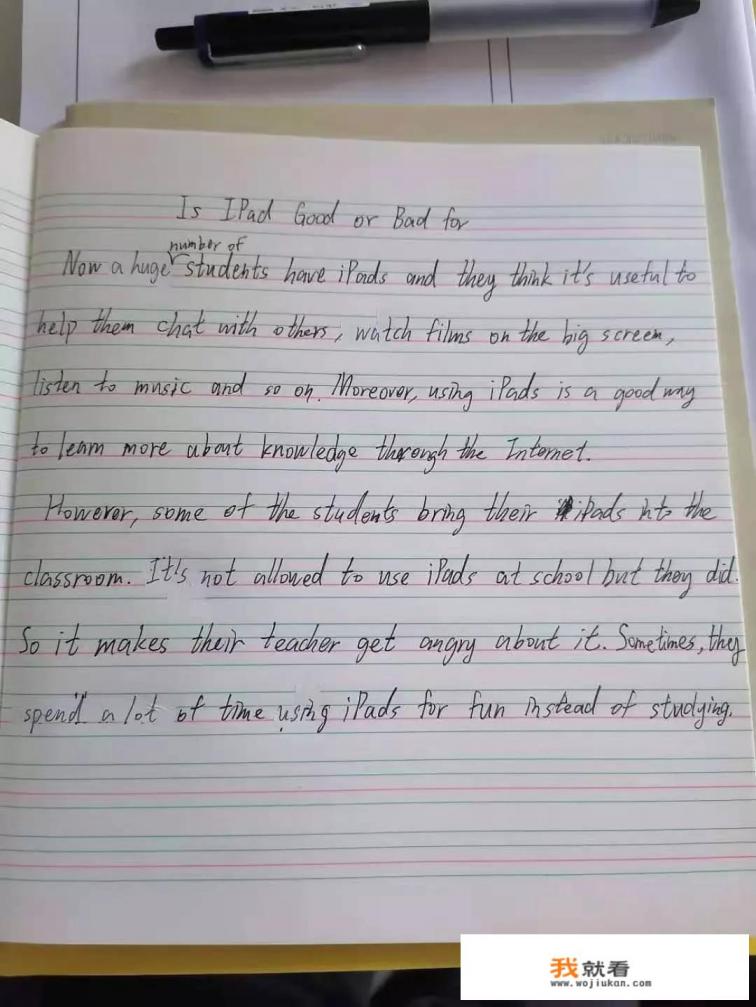 Is IPad Good or Bad for
number of
Now a huge students have iPads and they think it's useful to
help them chat with others, watch films on the big screen,
listen to music and so on. Moreover, using iPads is a good way
to learn more about knowledge through the Internet.
However, some of the students bring their iPads into the
classroom. It's not allowed to use iPads at school but they did.
So it makes their teacher get angry about it. Sometimes, they
spend a lot of time using iPads for fun instead of studying.
我就看
www.wojiukan.com